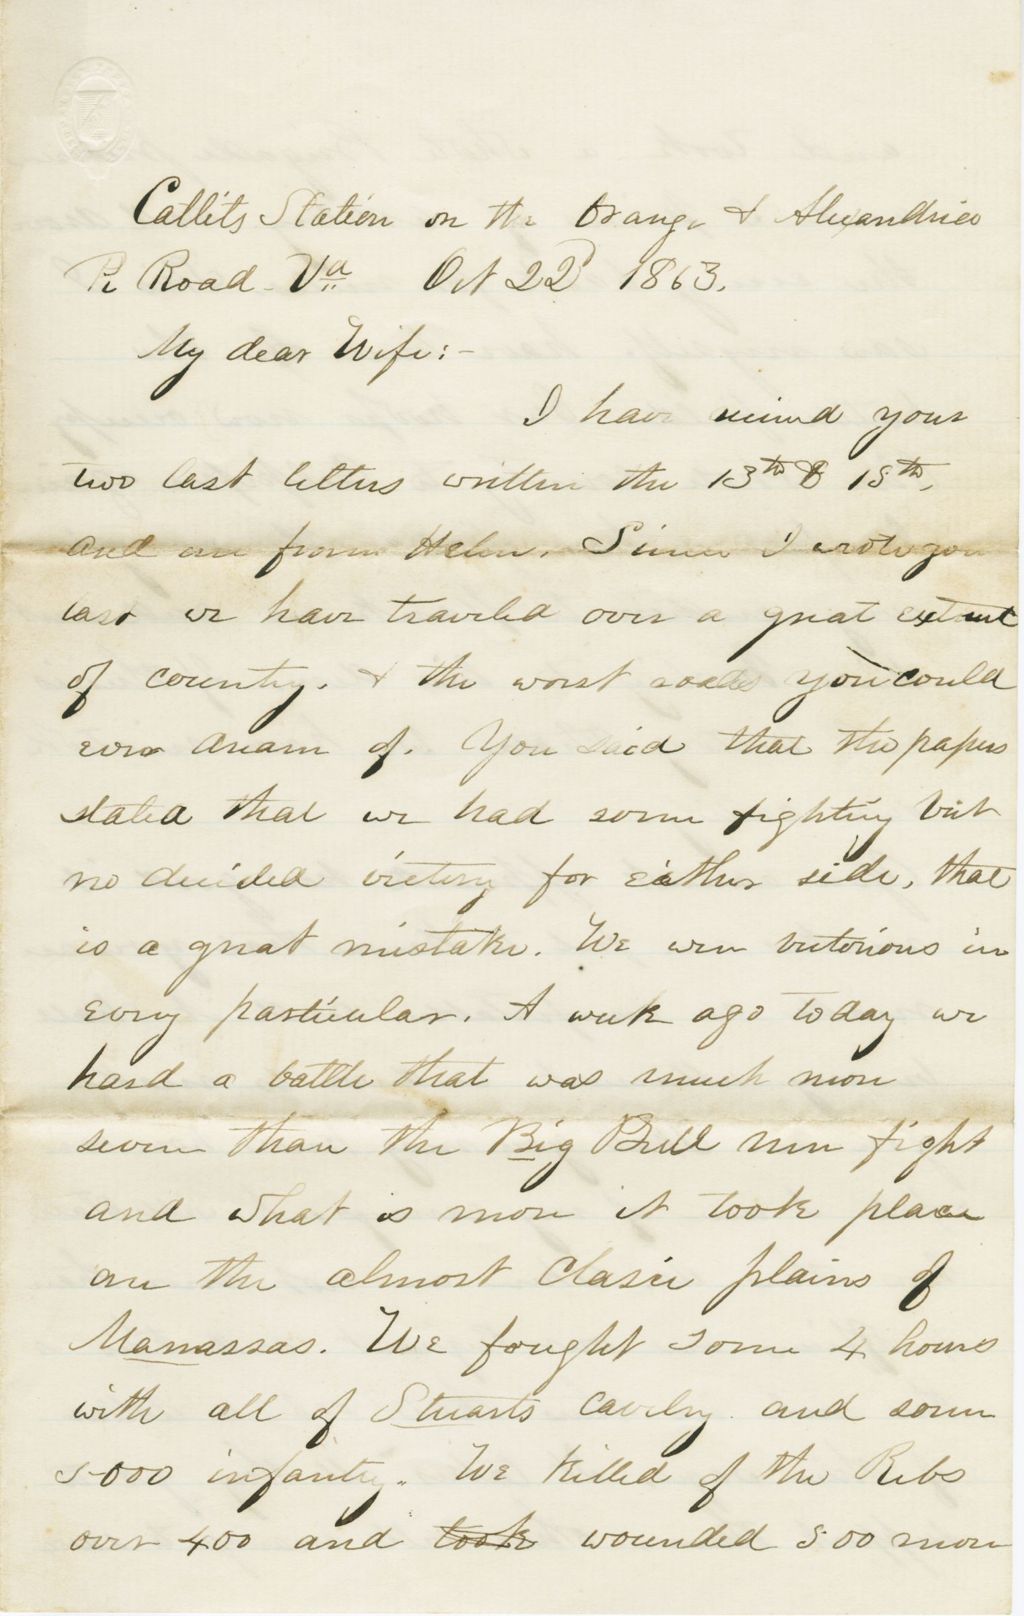 Catlits Station on the Orange & Alexandria
R Road - Va Oct 22d 1863.
My dear Wife:-
I have recieved your
two last letters written the 13th & 15th,
and one from Helen. Since I wrote you
last we have traveled over a great extent
of country. & the worst roads you could
ever dream of. You said that the papers
stated that we had some fighting but
no decided victory for eather side, that
is a great mistake. We were victorious in
every particular. A week ago today we
hard a battle that was much more
severe than the Big Bull run fight
and what is more it took place
on the almost Clasic plains of
Manassas. We fought some 4 hours
with all of Stuarts Cavelry and some
5000 infantry. We killed of the Rebs
over 400 and took wounded 500 more